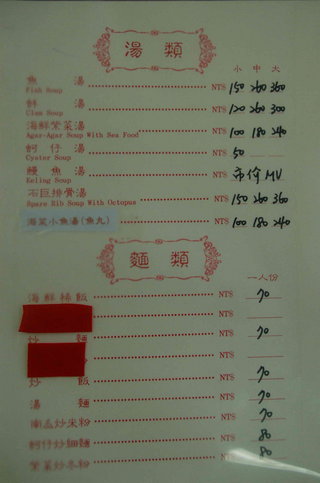 湯 類
小 中 大
魚 湯 NT$ 150 260 360
Fish Soup
蚌 湯 NT$ 120 260 300
Clam Soup
海鮮紫菜湯 NT$ 100 180 240
Agar-Agar Soup With Sea Food
蚵仔湯 NT$ 50
Oyster Soup
鰻魚湯 NT$ 市價 MV
Eeling Soup
石巨排骨湯 NT$ 150 260 360
Spare Rib Soup With Octopus
海菜小魚湯(魚丸) NT$ 100 180 240
麵 類
一人份
海鮮稀飯 NT$ 70
NT$
炒 麵 NT$ 70
NT$
炒 飯 NT$ 70
湯 麵 NT$ 70
南瓜炒米粉 NT$ 70
蚵仔炒細麵 NT$ 80
紫菜炒冬粉 NT$ 80